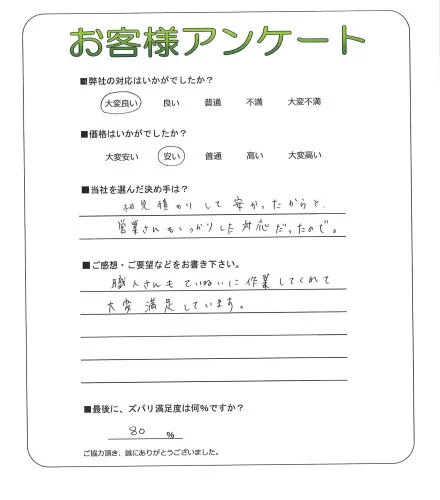 お客様アンケート
■弊社の対応はいかがでしたか？
大変良い 良い 普通 不満 大変不満
■価格はいかがでしたか？
大変安い 安い 普通 高い 大変高い
■当社を選んだ決め手は？
相見積もりして安かったからと、
営業さんもしっかりした対応だったので。
■ご感想・ご要望などをお書き下さい。
職人さんもていねいに作業してくれて
大変満足しています。
■最後に、ズバリ満足度は何％ですか？
80 %
ご協力頂き、誠にありがとうございました。